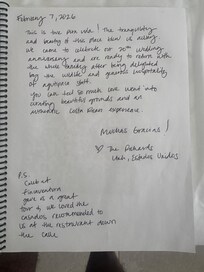 February 7, 2026
This is the Pura Vida! The tranquility
and beauty of this place is
We came to celebrate our 20th wedding
anniversary and are ready to return with
the whole family after being delighted
by the wildlife and gracious hospitality
of staff.
You can tell so much love went into
creating beautiful grounds and an
authentic Costa Rican experience.
Muchas Gracias!
♡ The
Utah, Estados Unidos
P.S.
at
gave us a great
tour & we loved the
casados recommended to
us at the restaurant down
the calle